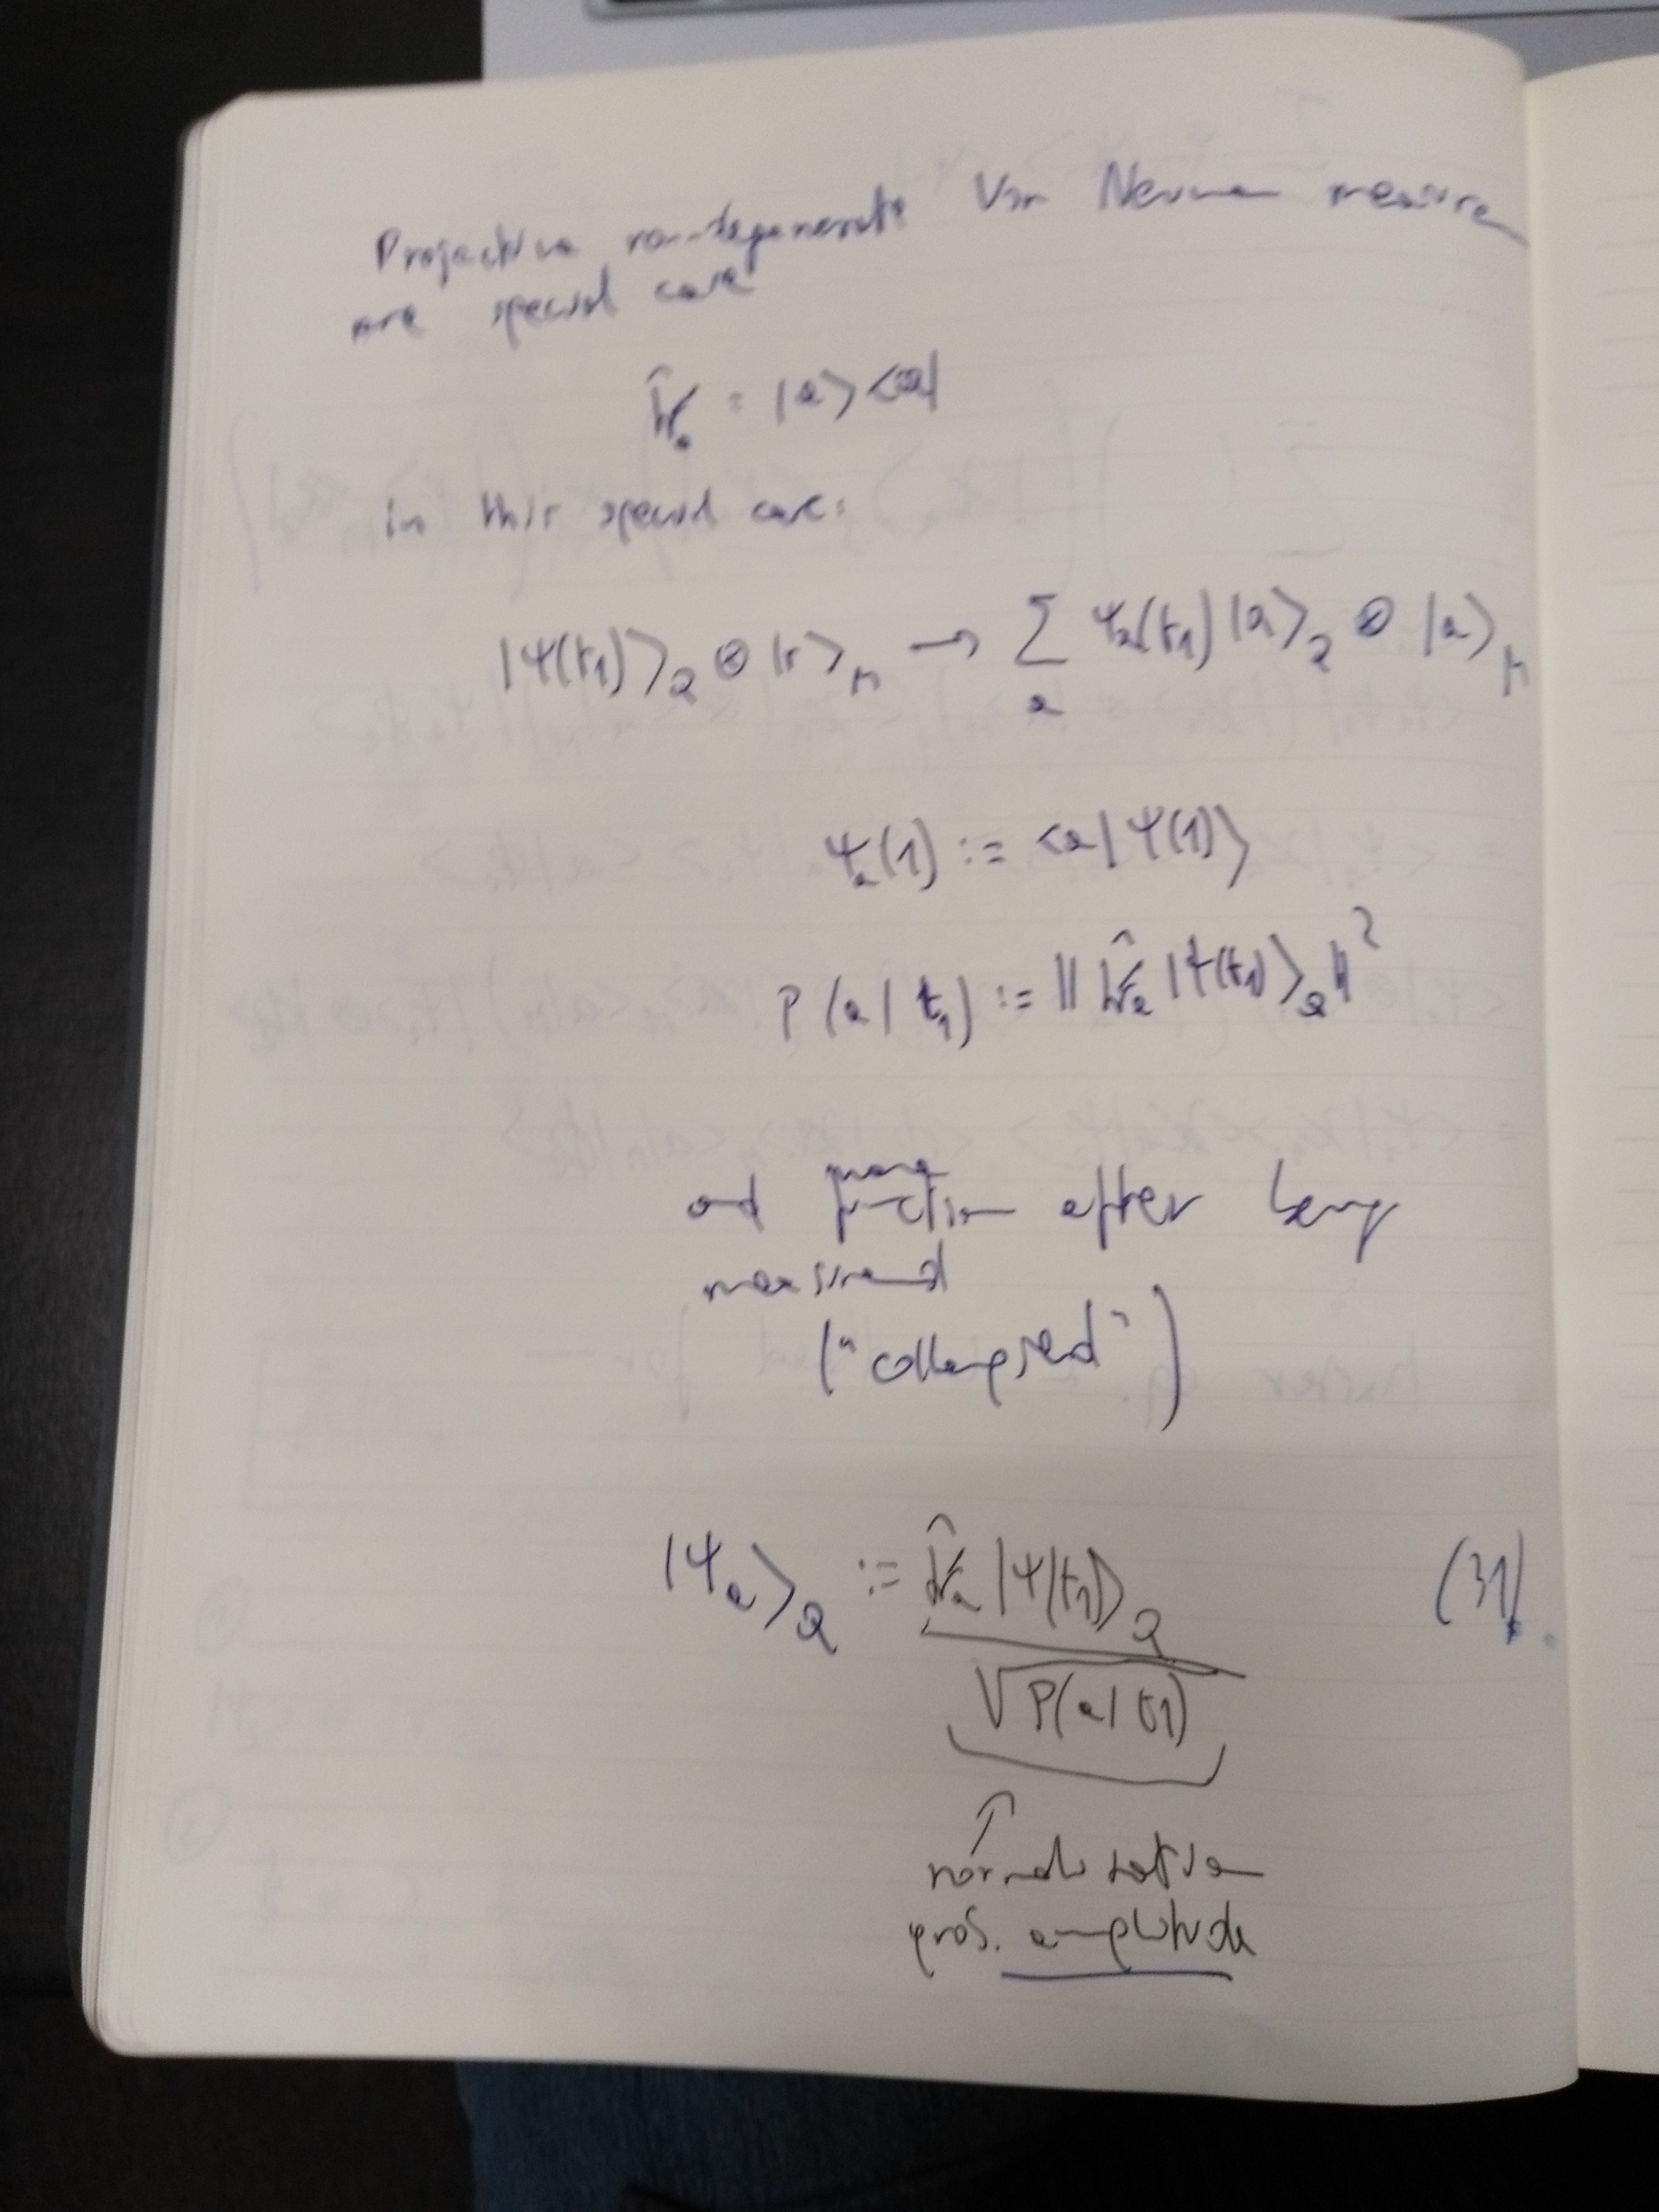 Projective non-degenerate Von Neumann measure
are special case
K̂ₐ = |a><a|
in this special case:
|Ψ(t₁)>_Q ⊗ |r>_M → ∑_a Ψₐ(t₁) |a>_Q ⊗ |a>_M
Ψₐ(1) := <a|Ψ(1)>
P(a|t₁) := ‖K̂ₐ |Ψ(t₁)>_Q‖²
and
function after being
measured
("collapsed")
|Ψₐ>_Q := K̂ₐ |Ψ(t₁)>_Q / √P(a|t1) (31).
↑
normalization
prob. amplitude